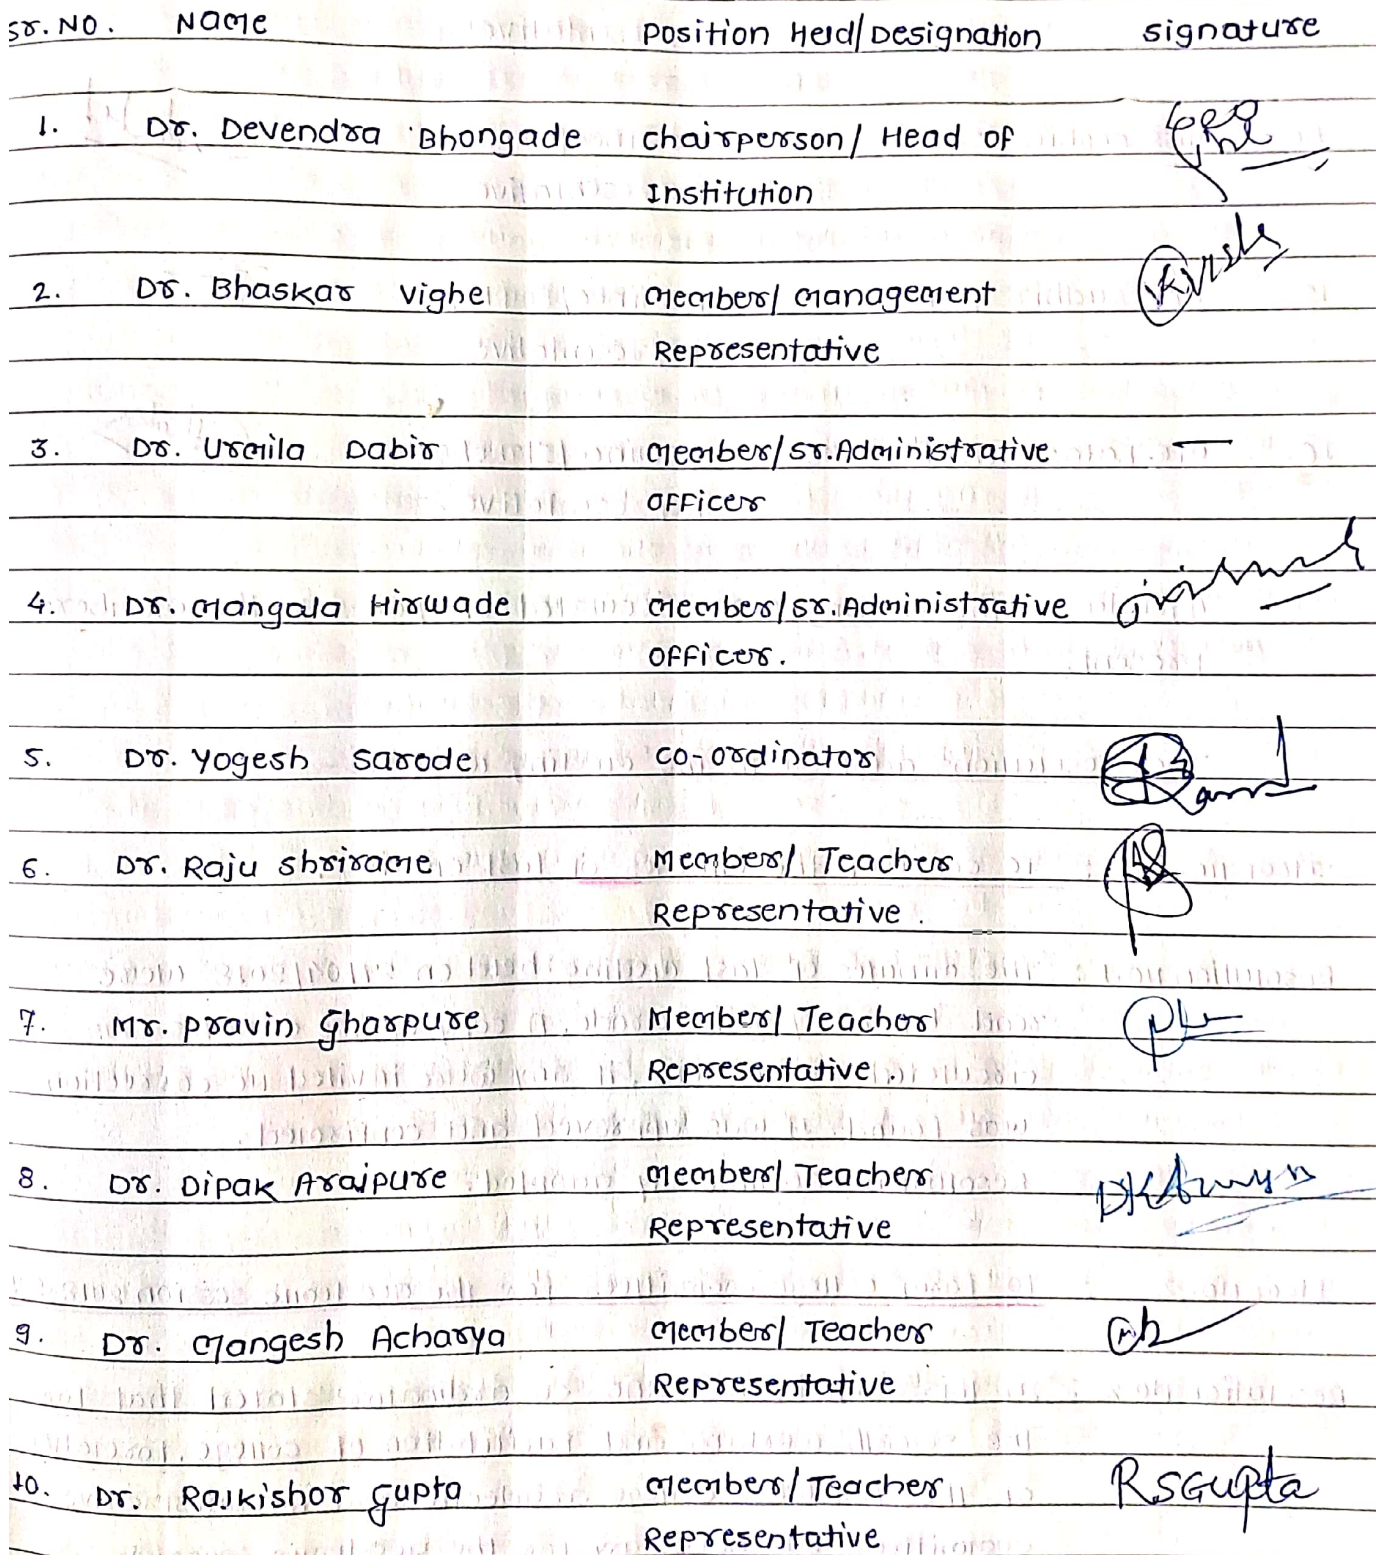 Sr. No. Name Position Held/Designation Signature
1. Dr. Devendra Bhongade Chairperson/ Head of
Institution
2. Dr. Bhaskar Vighe Member/ Management
Representative
3. Dr. Urmila Dabir Member/Sr.Administrative —
Officer
4. Dr. Mangala Hirwade Member/Sr.Administrative
Officer.
5. Dr. Yogesh Sarode Co-ordinator
6. Dr. Raju Shrirame Member/ Teacher
Representative.
7. Mr. Pravin Gharpure Member/ Teacher
Representative.
8. Dr. Dipak Arajpure Member/ Teacher
Representative
9. Dr. Mangesh Acharya Member/ Teacher
Representative
10. Dr. Rajkishor Gupta Member/Teacher RSGupta
Representative